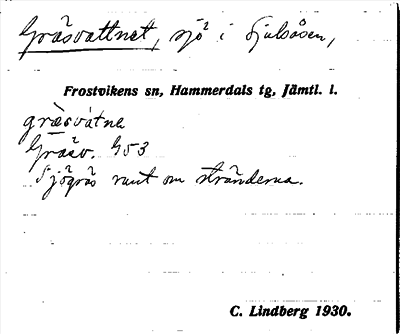 Gräsvattnet, sjö i Sjulsåsen,
Frostvikens sn, Hammerdals tg, Jämtl. l.
græsvátne
Gräsv. G53
Sjögräs runt om stränderna.
C. Lindberg 1930.